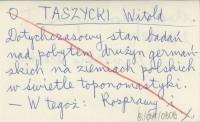 O TASZYCKI Witold.
Dotychczasowy stan badań
nad pobytem drużyn germań-
skich na ziemiach polskich
w świetle toponomastyki.
— W tegoż: Rozprawy i